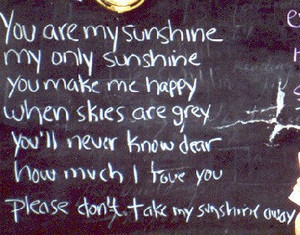 You are my sunshine
my only sunshine
you make me happy
when skies are grey
you'll never know dear
how much I love you
please don't take my sunshine away